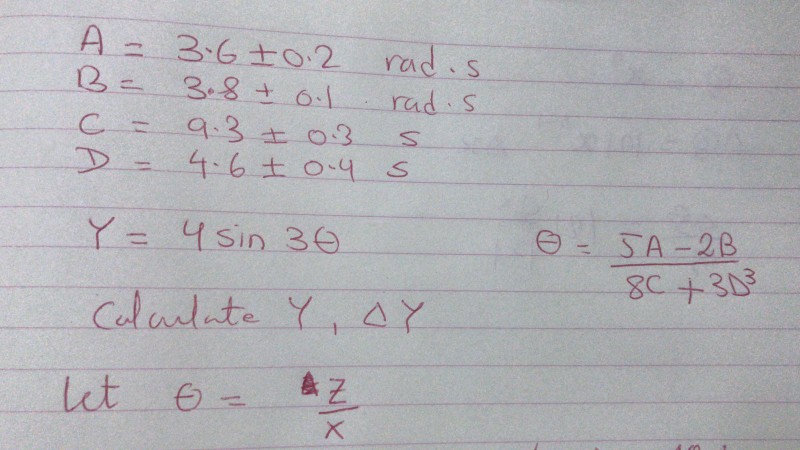 A = 3.6 ± 0.2 rad.s
B = 3.8 ± 0.1 rad.s
C = 9.3 ± 0.3 s
D = 4.6 ± 0.4 s
Y = 4 sin 3θ θ = (5A - 2B)/(8C + 3D³)
Calculate Y, ΔY
Let θ = Z/X